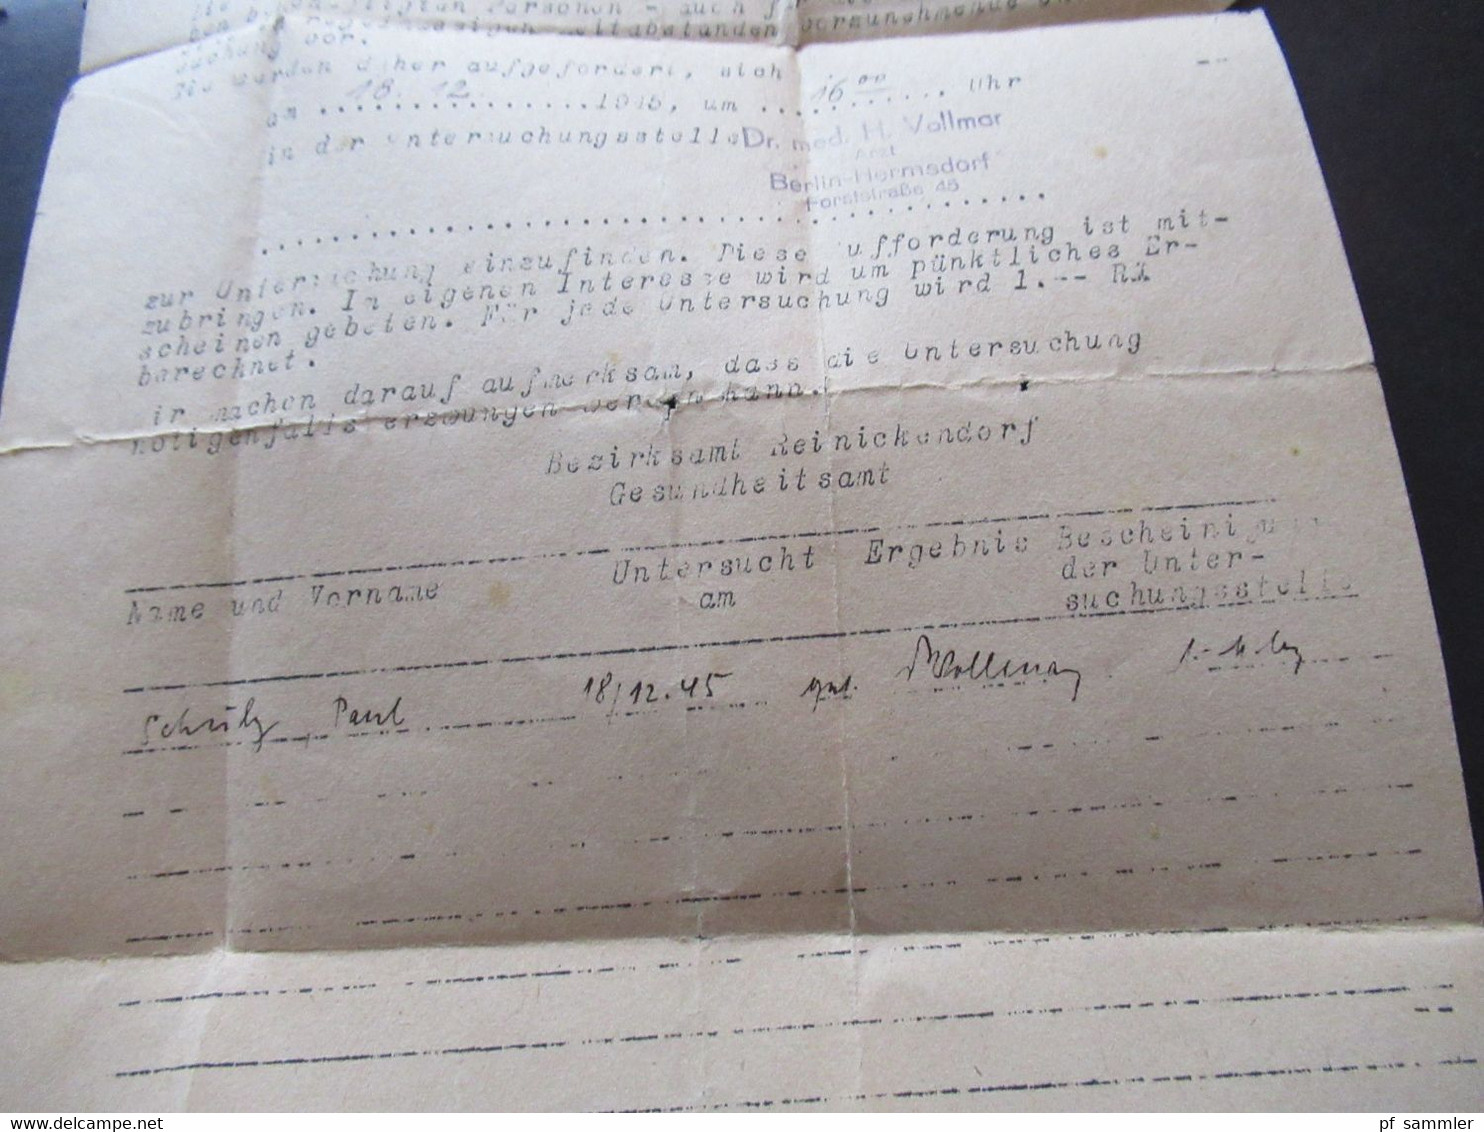 die beschäftigten Personen - auch für die
ben in regelmässigen Zeitabständen vorzunehmende
suchung vor.
Sie werden daher aufgefordert, sich
am 18. 12. 1945, um 16 00 Uhr
in der Untersuchungsstelle Dr. med. H. Vollmar
Arzt
Berlin-Hermsdorf
Forststraße 45
zur Untersuchung einzufinden. Diese Aufforderung ist mit-
zubringen. In eigenen Interesse wird um pünktliches Er-
scheinen gebeten. Für jede Untersuchung wird 1.-- RM
berechnet.
Wir machen darauf aufmerksam, dass die Untersuchung
nötigenfalls erzwungen werden kann.
Bezirksamt Reinickendorf
Gesundheitsamt
Name und Vorname Untersucht am Ergebnis Bescheinigung
der Unter-
suchungsstelle
Schulz Paul 18/12.45 Vollmar
pf sammler